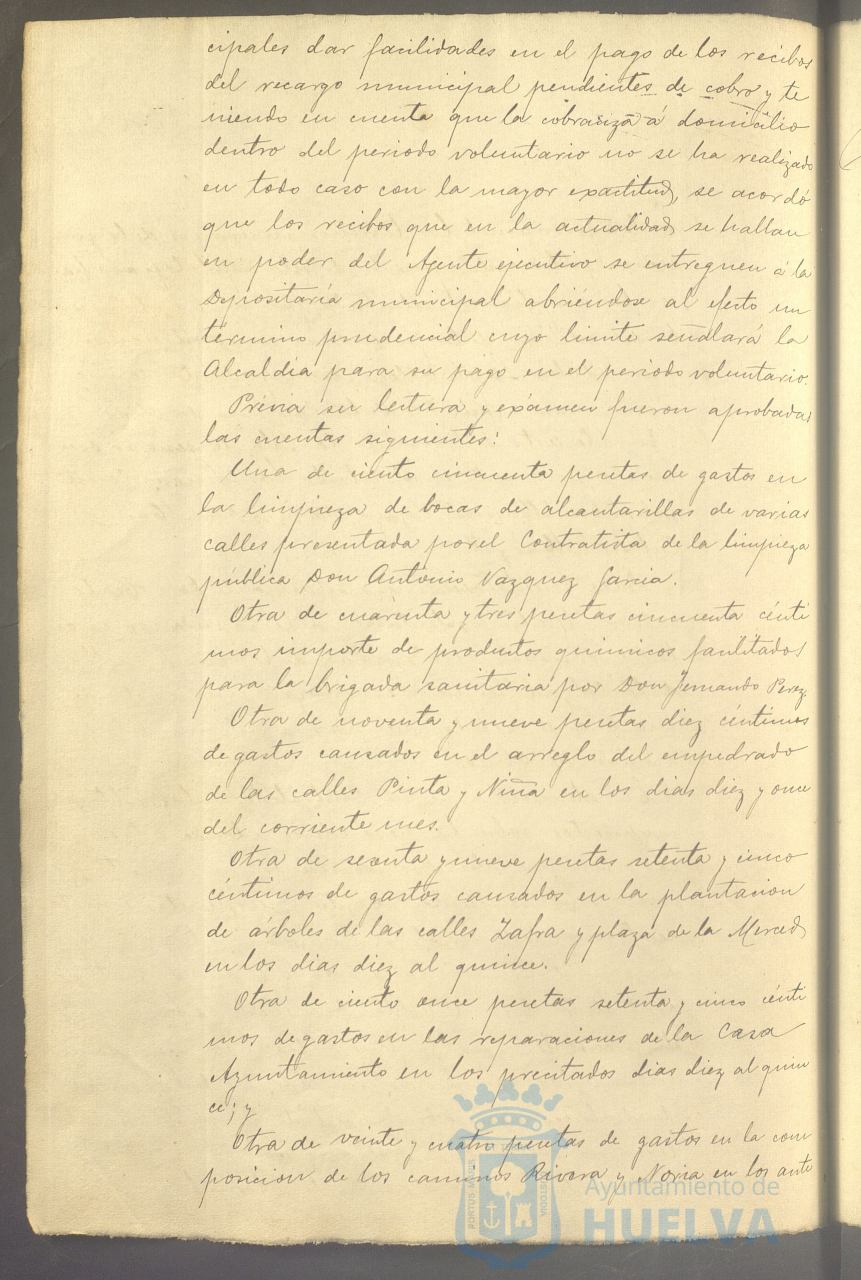 cipales dar facilidades en el pago de los recibos
del recargo municipal pendientes de cobro y te
niendo en cuenta que la cobranza á domicilio
dentro del periodo voluntario no se ha realizado
en todo caso con la mayor exactitud, se acordó
que los recibos que en la actualidad se hallan
en poder del Agente ejecutivo se entreguen á la
Depositaría municipal abriéndose al efecto un
término prudencial cuyo limite señalará la
Alcaldia para su pago en el periodo voluntario.
Prévia su lectura y exámen fueron aprobadas
las cuentas siguientes:
Una de ciento cincuenta pesetas de gastos en
la limpieza de bocas de alcantarillas de varias
calles presentada por el Contratista de la limpieza
pública Don Antonio Vazquez Garcia.
Otra de cuarenta y tres pesetas cincuenta cénti
mos importe de productos quimicos facilitados
para la brigada sanitaria por Don Fernando Perez.
Otra de noventa y nueve pesetas diez céntimos
de gastos causados en el arreglo del empedrado
de las calles Pinta y Niña en los dias diez y once
del corriente mes.
Otra de sesenta y nueve pesetas setenta y cinco
céntimos de gastos causados en la plantacion
de árboles de las calles Zafra y plaza de la Merced
en los dias diez al quince.
Otra de ciento once pesetas setenta y cinco cénti
mos de gastos en las reparaciones de la Casa
Ayuntamiento en los precitados dias diez al quin
ce; y
Otra de veinte y cuatro pesetas de gastos en la com
posicion de los caminos Rivera y Noria en los ante
Ayuntamiento de
HUELVA
PORTUS MARIS
ET TERRÆ CUSTODIA